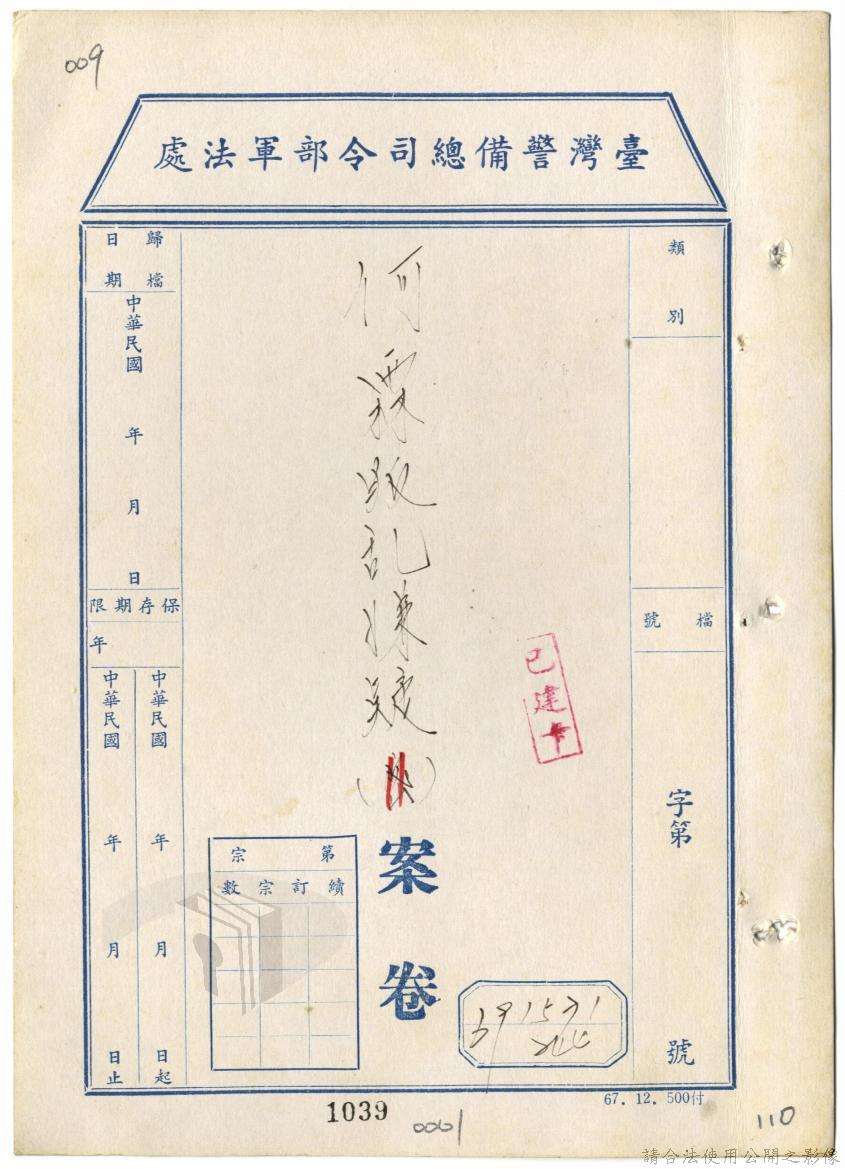 009
臺灣警備總司令部軍法處
類別
檔號
字第
號
何霖叛乱嫌疑
案卷
已建卡
歸檔日期
中華民國 年 月 日
保存期限
年
中華民國 年 月 日起
中華民國 年 月 日止
第 宗
續訂宗數
67. 12. 500付
1039
0001
110
請合法使用公開之影像